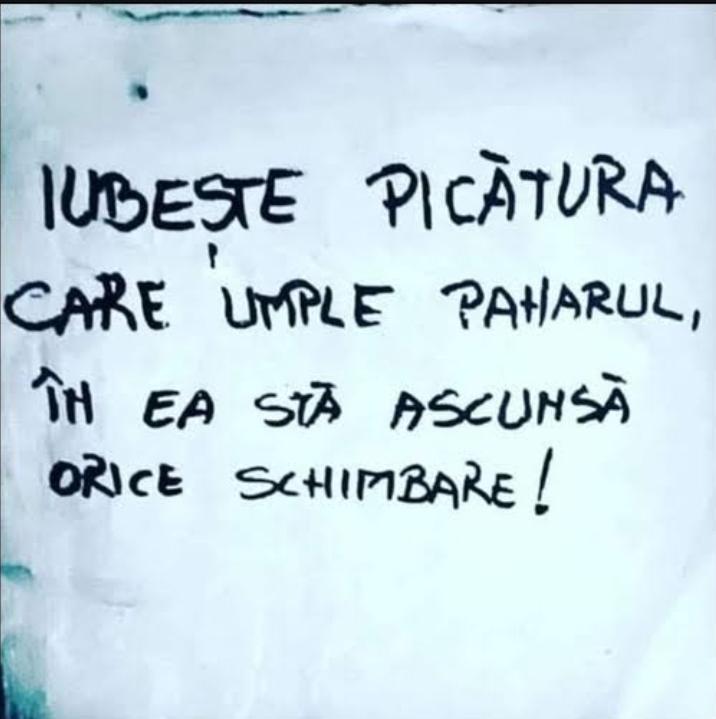 IUBEȘTE PICĂTURA
CARE UMPLE PAHARUL,
ÎN EA STĂ ASCUNSĂ
ORICE SCHIMBARE!